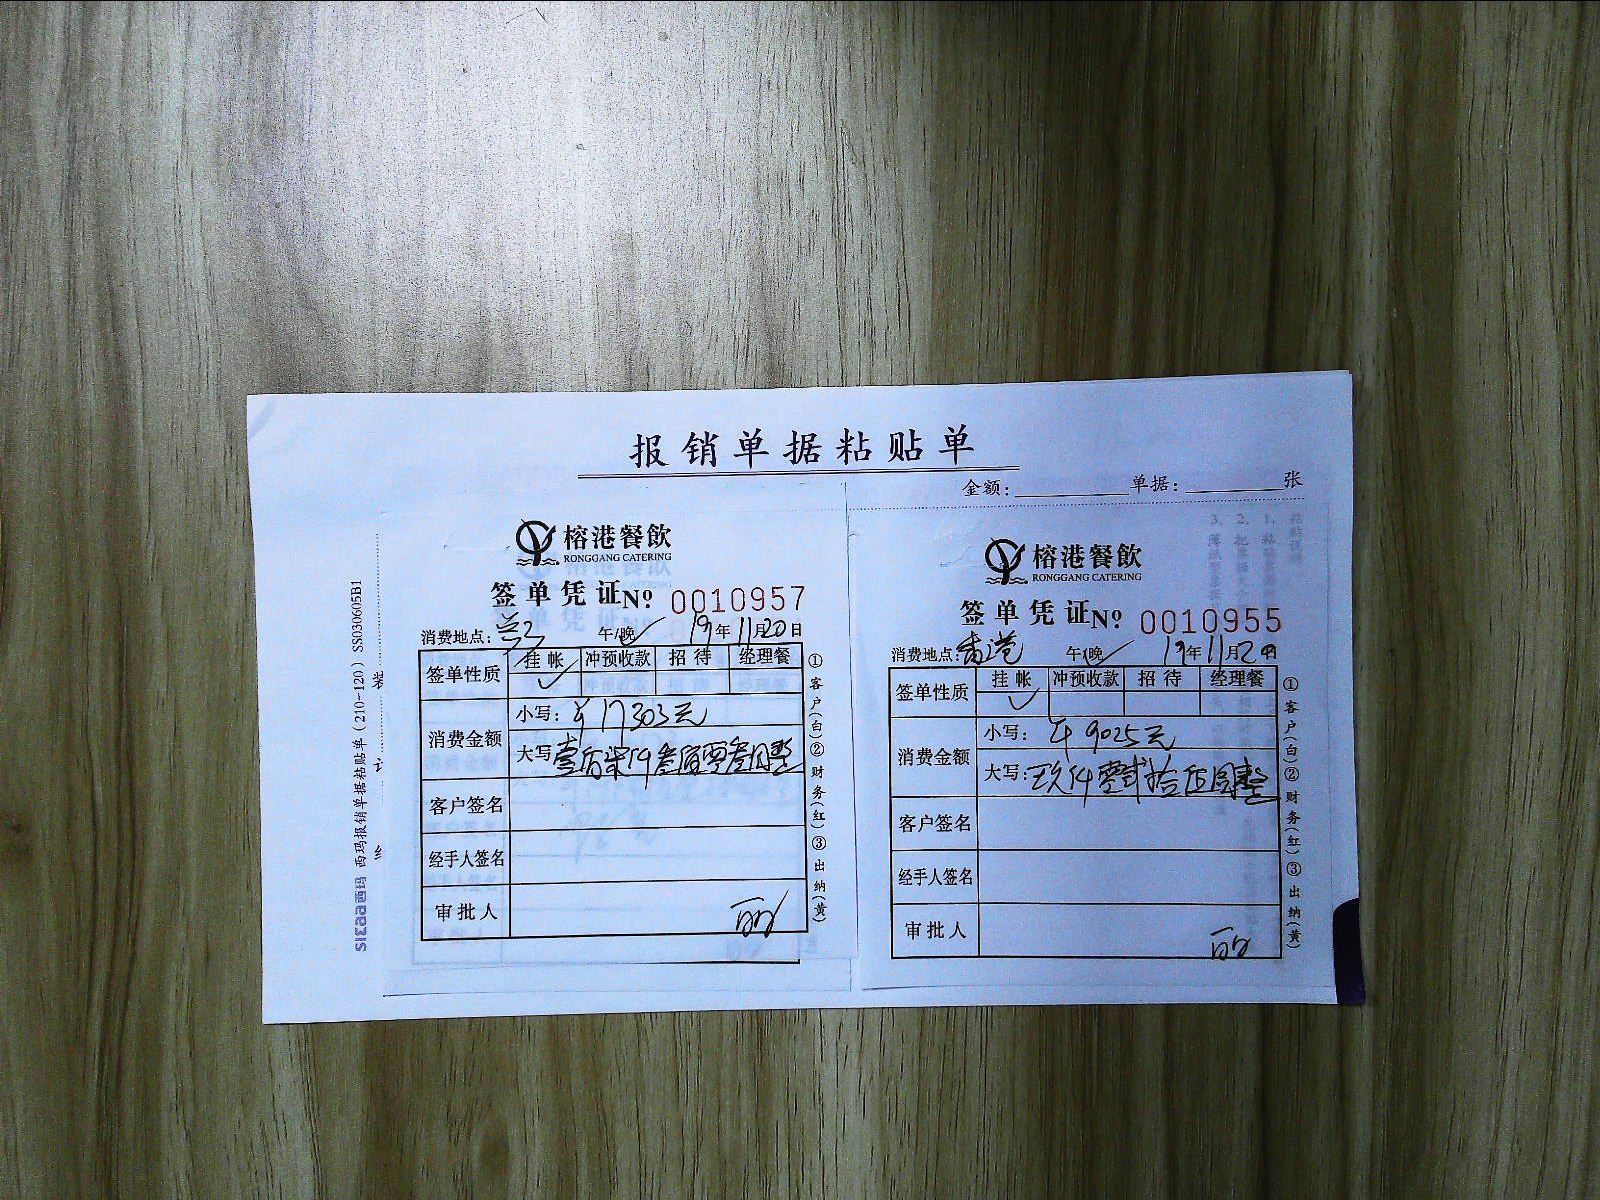 报销单据粘贴单
金额：
单据：
张
SICAA西玛 西玛报销单据粘贴单（210-120）SS030605B1
装
订
榕港餐飲
RONGGANG CATERING
签单凭证 Nº 0010957
消费地点：
午/晚 19年11月20日
签单性质 挂帐 冲预收款 招待 经理餐
消费金额
小写：¥17303元
大写
叁佰零叁圆整
客户签名
经手人签名
审批人
①客户(白)②财务(红)③出纳(黄)
榕港餐飲
RONGGANG CATERING
签单凭证 Nº 0010955
消费地点：香港 午/晚 19年11月2
签单性质 挂帐 冲预收款 招待 经理餐
消费金额
小写：¥9025元
大写：玖仟零贰拾伍圆整
客户签名
经手人签名
审批人
①客户(白)②财务(红)③出纳(黄)